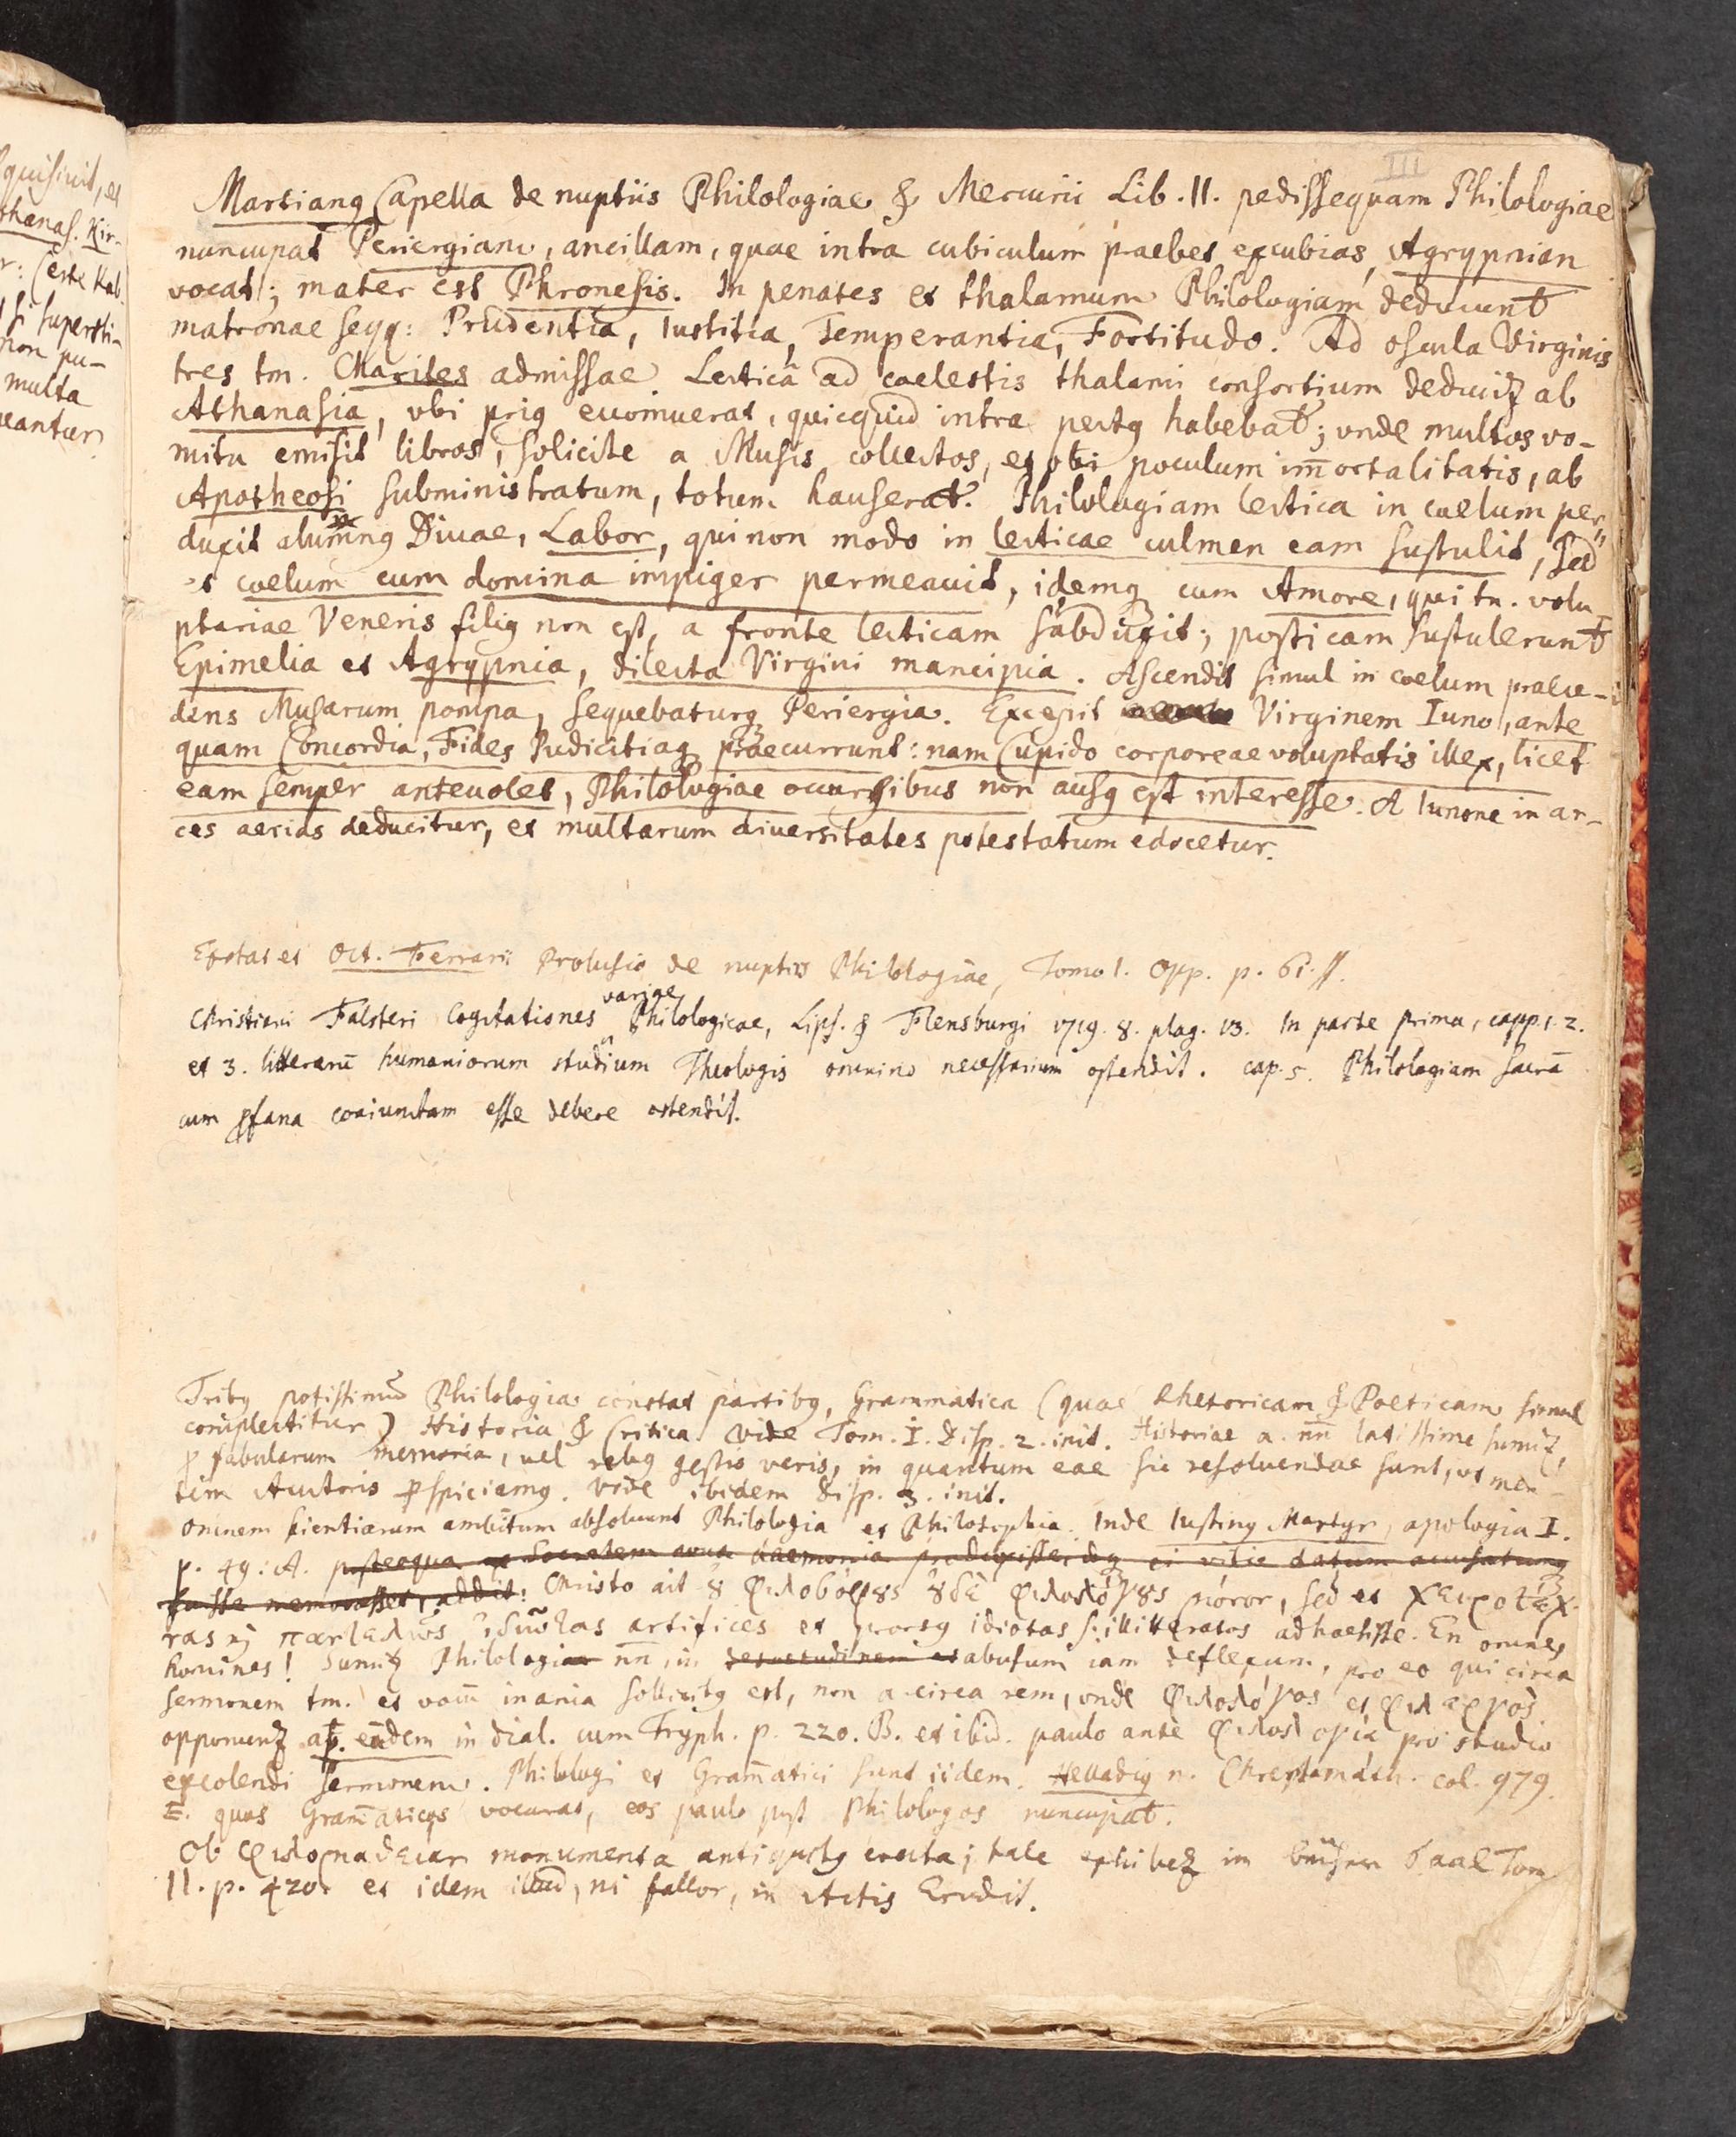 III
Martiang Capella de nuptiis Philologiae & Mercurii Lib. II. pedissequam Philologiae
nuncupat Periergiam, ancillam, quae intra cubiculum praebet excubias, Agrypnian
vocat; mater est Phronesis. In penates et thalamum Philologiam deducunt
matronae seqq: Prudentia, Iustitia, Temperantia, Fortitudo. Ad oscula Virginis
tres tm. Charites admissae. Lectica ad caelestis thalami consortium ducit ab
Athanasia, vbi prig euomuerat, quicquid intra pectg habebat; vnde multos vo-
mitu emisit libros, solicite a Musis collectos, et vbi poculum im̄ortalitatis, ab
Apotheosi subministratum, totum hauserat. Philologiam lectica in caelum per-
duxit alumng Diuae, Labor, qui non modo in lecticae culmen eam sustulit, sed
et coelum cum domina impiger permeauit, idemq cum Amore, qui tn. volu-
ptariae Veneris filig non est, a fronte lecticam subduxit; posticam sustulerunt
Epimelia et Agrypnia, dilecta Virgini mancipia. Ascendit simul in coelum praece-
dens Musarum pompa, sequebaturq Periergia. Excepit Virginem Iuno, ante
quam Concordia, Fides Pudicitiaq praecurrunt: nam Cupido corporeae voluptatis illex, licet
eam semper anteuolet, Philologiae occursibus non ausg est interesse. A Iunone in ar-
ces aerias deducitur, et multarum diuersitates potestatum edocetur.
Exstat et Oct. Ferrarii Prolusio de nuptiis Philologiae, Tomo I. Opp. p. 61. ss.
Christiani Falsteri Cogitationes variae Philologicae, Lips. & Flensburgi 1719. 8. plag. 13. In parte prima, capp. 1. 2.
et 3. litterarū humaniorum studium Theologis omnino necessarium ostendit. cap. 5. Philologiam sacrā
cum pfana coniunctam esse debere ostendit.
Tribg potissimum Philologia constat partibg, Grammatica (quae Rhetoricam & Poeticam simul
complectitur) Historia & Critica. Vide Tom. I. Disp. 2. init. Historiae a. nn̄ latissime sumit
p fabularum memoria, vel rebg gestis veris, in quantum eae sic resoluendae sunt, vt men-
tem Auctoris pspiciamg. Vide ibidem Disp. 3. init.
Omnem scientiarum ambitum absoluunt Philologia et Philosophia. Inde Iusting Martyr, apologia I.
p. 49. A. Socratem daemonia datum
addit: Christo ait ȣ φιλοσόφȣς ȣδὲ φιλολόγȣς μόνον, sed et χειροτέχ-
νας κὶ παντελῶς ἰδιώτας artifices et prorsg idiotas s. illitteratos adhaesisse. En omnes
homines! Philologi nn̄ in abusum iam deflexum, pro eo qui circa
sermonem tm. et inania sollicitg est, non a. circa rem, vnde φιλολόγος et φιλεργὸς
ap. eūdem in dial. cum Tryph. p. 220. B. et ibid. paulo ante φιλολογία pro studio
excolendi sermonem. Philologi et Gram̄atici sunt iidem. Helladig n. Chrestomath. col. 979.
E. quos Gram̄aticos vocarat, eos paulo post Philologos nuncupat.
Ob φιλομαθειαν monumenta antiquitg erecta; tale exhibet im Bücher Saal Tom
II. p. 420. et idem illud, ni fallor, in Actis Erudit.